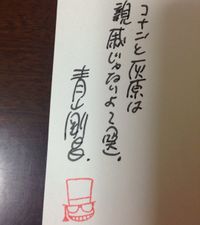 コナンと灰原は
親戚じゃないよ(笑).
青山剛昌.